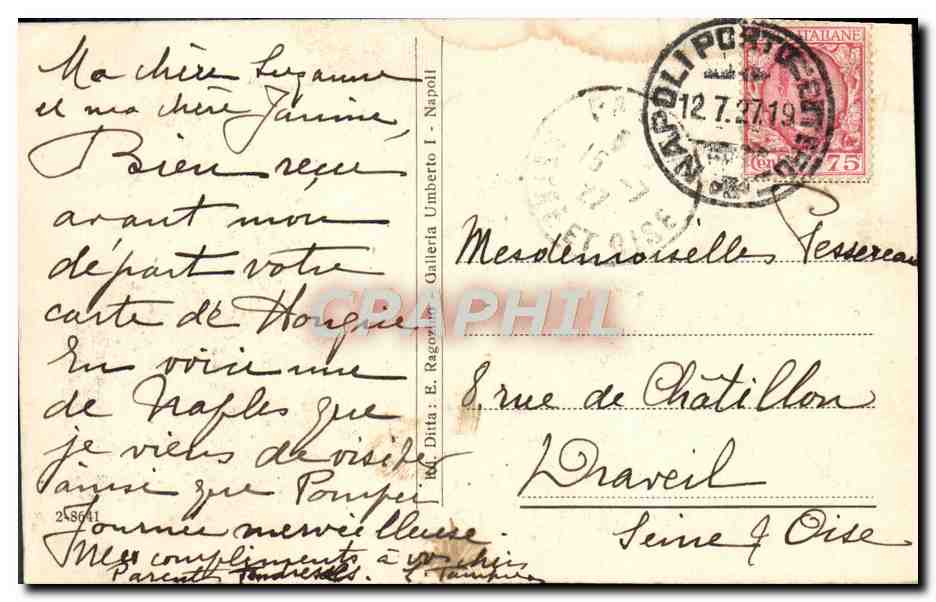 Ma chère Suzanne
et ma chère Janine,
Bien reçu
avant mon
départ votre
carte de Hongrie
En voici une
de Naples que
je viens de visiter
ainsi que Pompei
Journée merveilleuse.
Mes compliments à vos chers
Parents Tendresses.
2-8641
Ditta: E. Ragozino - Galleria Umberto I - Napoli
ITALIANE
75
NAPOLI PORTO
12.7.27.19
ET OISE
Mesdemoiselles Tessereau
8, rue de Châtillon
Draveil
Seine & Oise
CPAPHIL